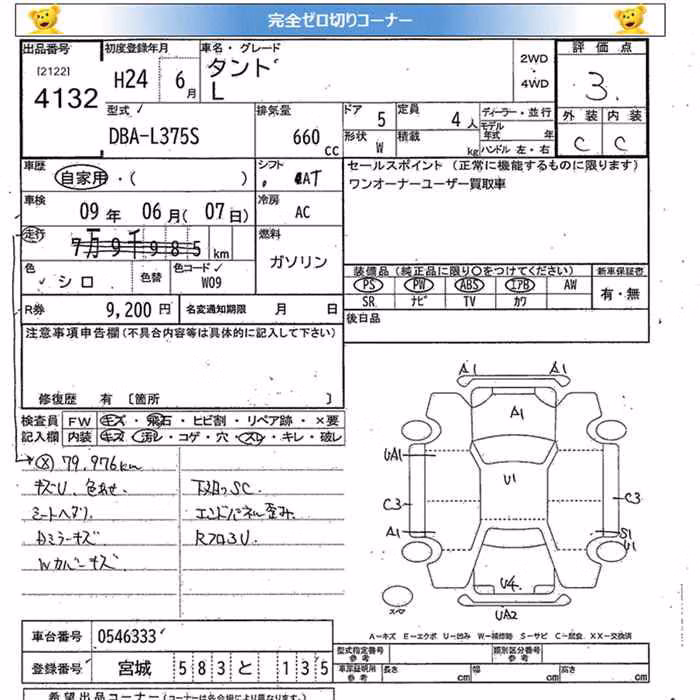 完全ゼロ切りコーナー
出品番号 初度登録年月 車名・グレード 評価点
[2122]
4132 H24 6月 タント L 2WD・4WD 3.
型式 排気量 ドア 5 定員 4人 ディーラー・並行 外装 内装
DBA-L375S 660cc 形状 W 積載 kg モデル年式 年 ハンドル 左・右 C C
車歴 自家用・( ) シフト AT セールスポイント (正常に機能するものに限ります)
車検 09年 06月(07日) 冷房 AC ワンオーナーユーザー買取車
走行 7万9千985km 燃料 ガソリン
色 シロ 色替 色コード W09 装備品(純正品に限り〇をつけてください) 新車保証書
PS PW ABS エアB AW 有・無
SR ナビ TV カワ
R券 9,200円 名変通知期限 月 日 後日品
注意事項申告欄(不具合内容等は具体的に記入して下さい)
修復歴 有 〔箇所 〕
検査員 FW キズ・飛石・ヒビ割・リペア跡・×要
記入欄 内装 キズ・汚レ・コゲ・穴・スレ・キレ・破レ
79,976km
キズU、色あせ、 下メタロッSC.
シートヘタリ、 エンドパネル歪み、
Dミラーキズ
Wカバーキズ
A1 A1
A1
UA1 U1
C3 C3
A1 S1
U1
U4
スペア UA2
A-キズ E-エクボ U-凹み W-補修跡 S-サビ C-腐食 XX-交換済
車台番号 0546333
型式指定番号 参考 類別区分番号 参考
登録番号 宮城 583 と 135
車庫証明用 参考 長さ cm 幅 cm 高さ cm
希望出品コーナー